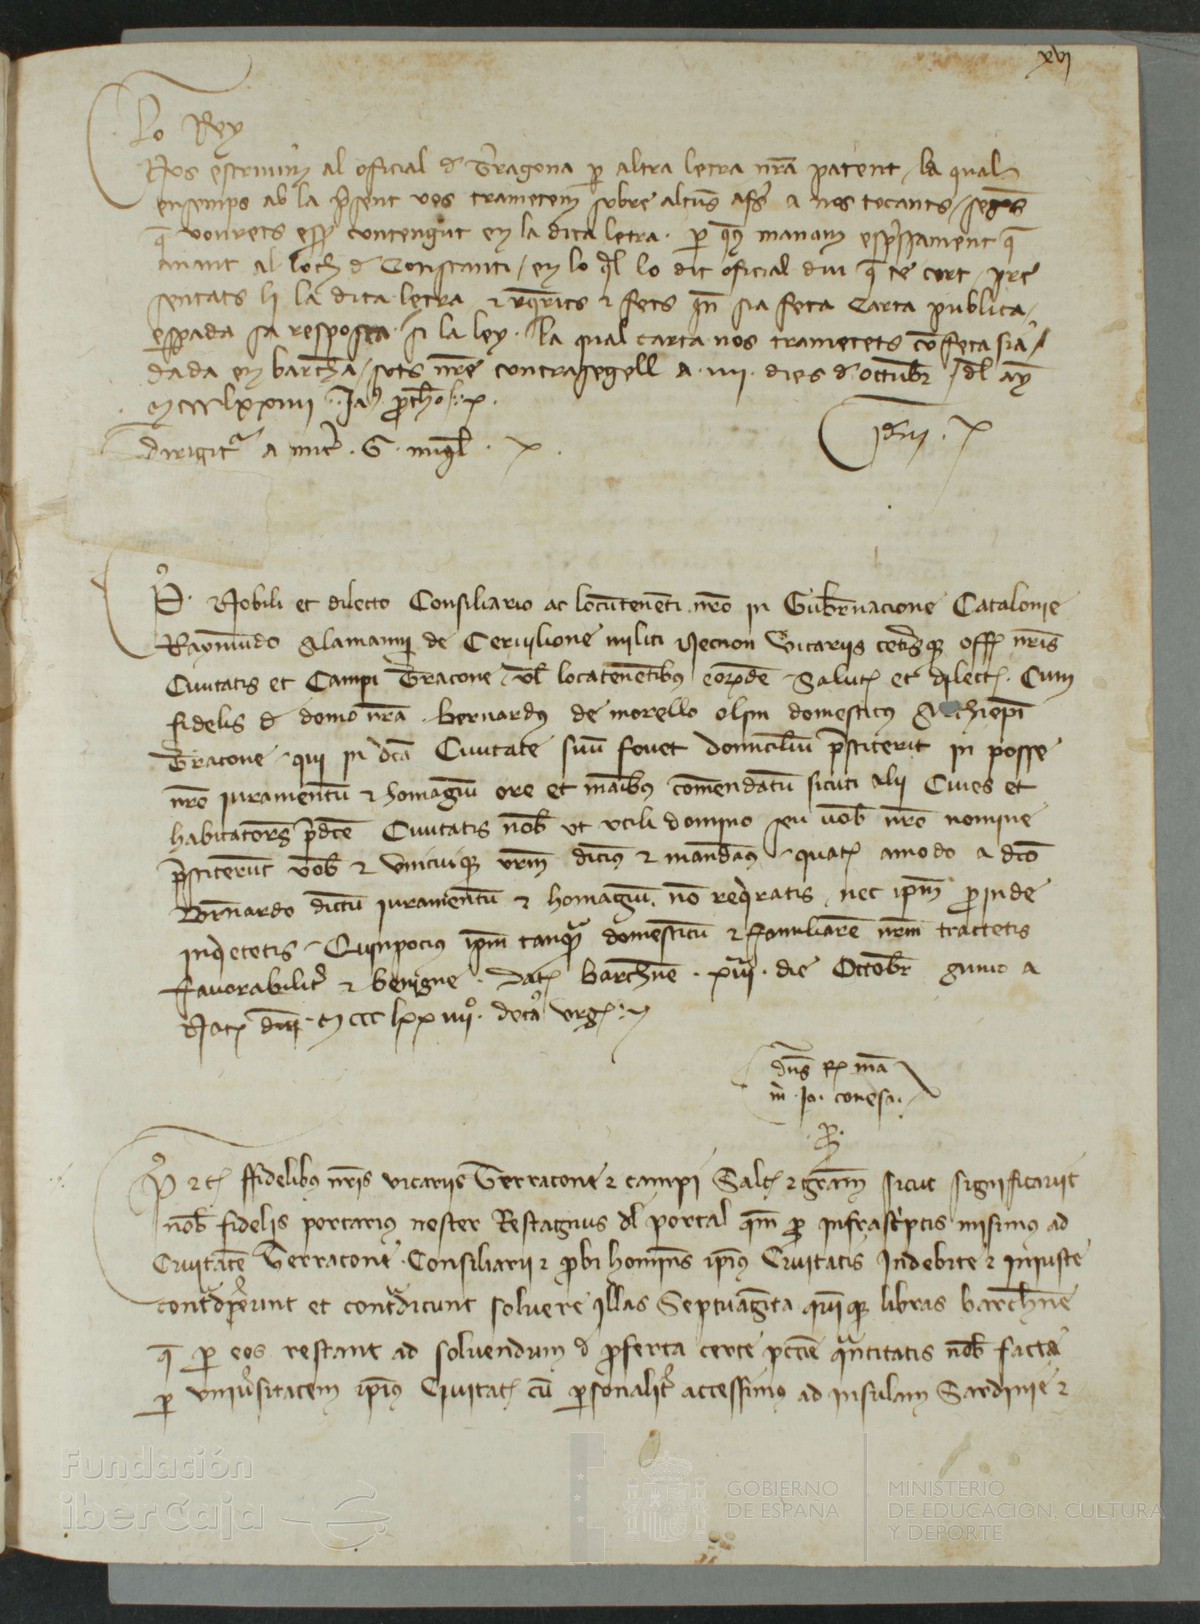 xvj
Lo Rey
Nos escrivim al oficial d Terragona per altra letra nra patent la qual
ensemps ab la present vos trametem sobre alcuns affers a nos tocants segons
que veurets esser contengut en la dita letra. per que us manam expressament que
anant al loch d Constanti en lo qual lo dit oficial diu que te cort pre
sentats li la dita letra e requirits e fets quen sia feta Carta publica
esperada sa resposta si la ley. la qual carta nos trametets com feta sia
dada en barchna sots nre contrasegell a .iiij. dies d octubr dl any
Mccclxxiiij
dirigitur a micer . G . miquel
idem . P
P. Nobili et dilecto Consiliario ac locumtenenti nro in Gubernacione Catalonie
Raymundo Alamanni de Cervilione militi Necnon vicariis ceterisque offic nris
Civitatis et Campi Terracone vel locatenentibus eorumdem Salutem et dilect. Cum
fidelis d domo nra . Bernardus de morello olim domesticus Archiepi
Terracone qui in dca Civitate suum fovet domicilium prestiterit in posse
nro iuramentum et homagium ore et manibus comendatum sicuti alii Cives et
habitatores predce Civitatis nobis ut utili domino seu vobis nro nomine
prestiterunt vobis et unicuique vrm dicimus et mandamus quatenus amodo a dco
Bernardo dictum iuramentum et homagium non requiratis nec ipm proinde
inquietetis Quinpocius ipm tanquam domesticum et familiarem nrm tractetis
favorabiliter et benigne . Dat barchne . xiiij . die Octobr anno a
Nat dni Mccclxxiiij°.
dns Rex ma
m . Ja. conesa.
P etc fidelibus nris vicariis Terracone et campi Salt et gram sicut significavit
nob fidelis porterius noster Restagnus dl portal quem pro infrascriptis misimus ad
Civitatem Terracone Consiliarii et probi homines ipius Civitatis Indebite et iniuste
contradixerunt et contradicunt solvere illas Septuaginta quinque libras barchne
que per eos restant ad solvendum d proferta certe peccunie quantitatis nob facta
per universitatem ipius Civitat cum personaliter accessimus ad insulam Sardinie et
Fundación
iberCaja
GOBIERNO
DE ESPAÑA
MINISTERIO
DE EDUCACIÓN, CULTURA
Y DEPORTE